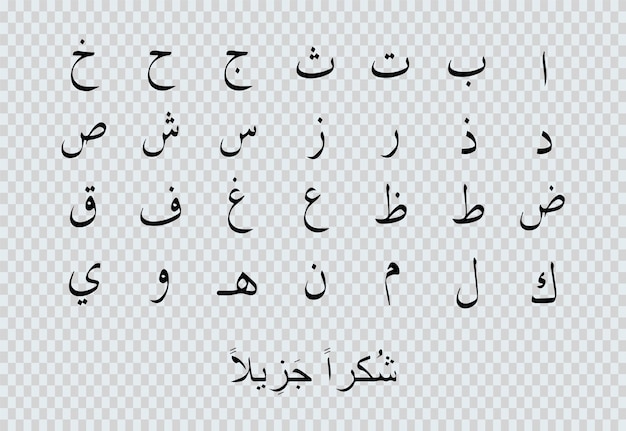 ا ب ت ث ج ح خ
د ذ ر ز س ش ص
ض ط ظ ع غ ف ق
ك ل م ن هـ و ي
شُكراً جَزِيلاً